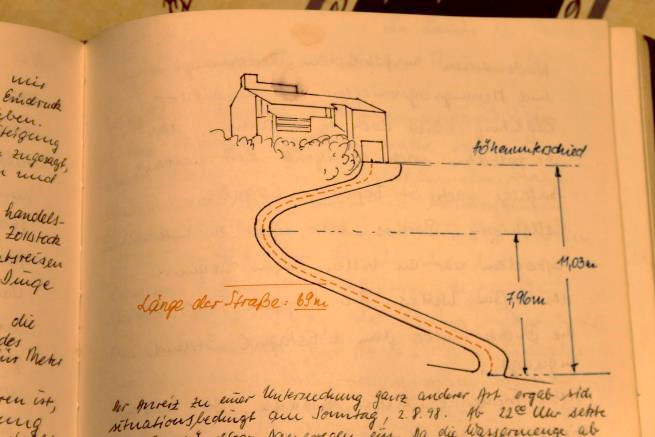 mir
Eindruck
eben.
teigung
zugesagt,
und
handels-
Zollstock
tsreisen
Dinge
die
des
für Meter
en ist,
Höhenunterschied
11,03m
7,96m
Länge der Straße: 69m
Der Anreiz zu einer Untersuchung ganz anderer Art ergab sich
situationsbedingt am Sonntag, 2.8.98. Ab 22°° Uhr setzte
ein. Da die Wassermenge ab